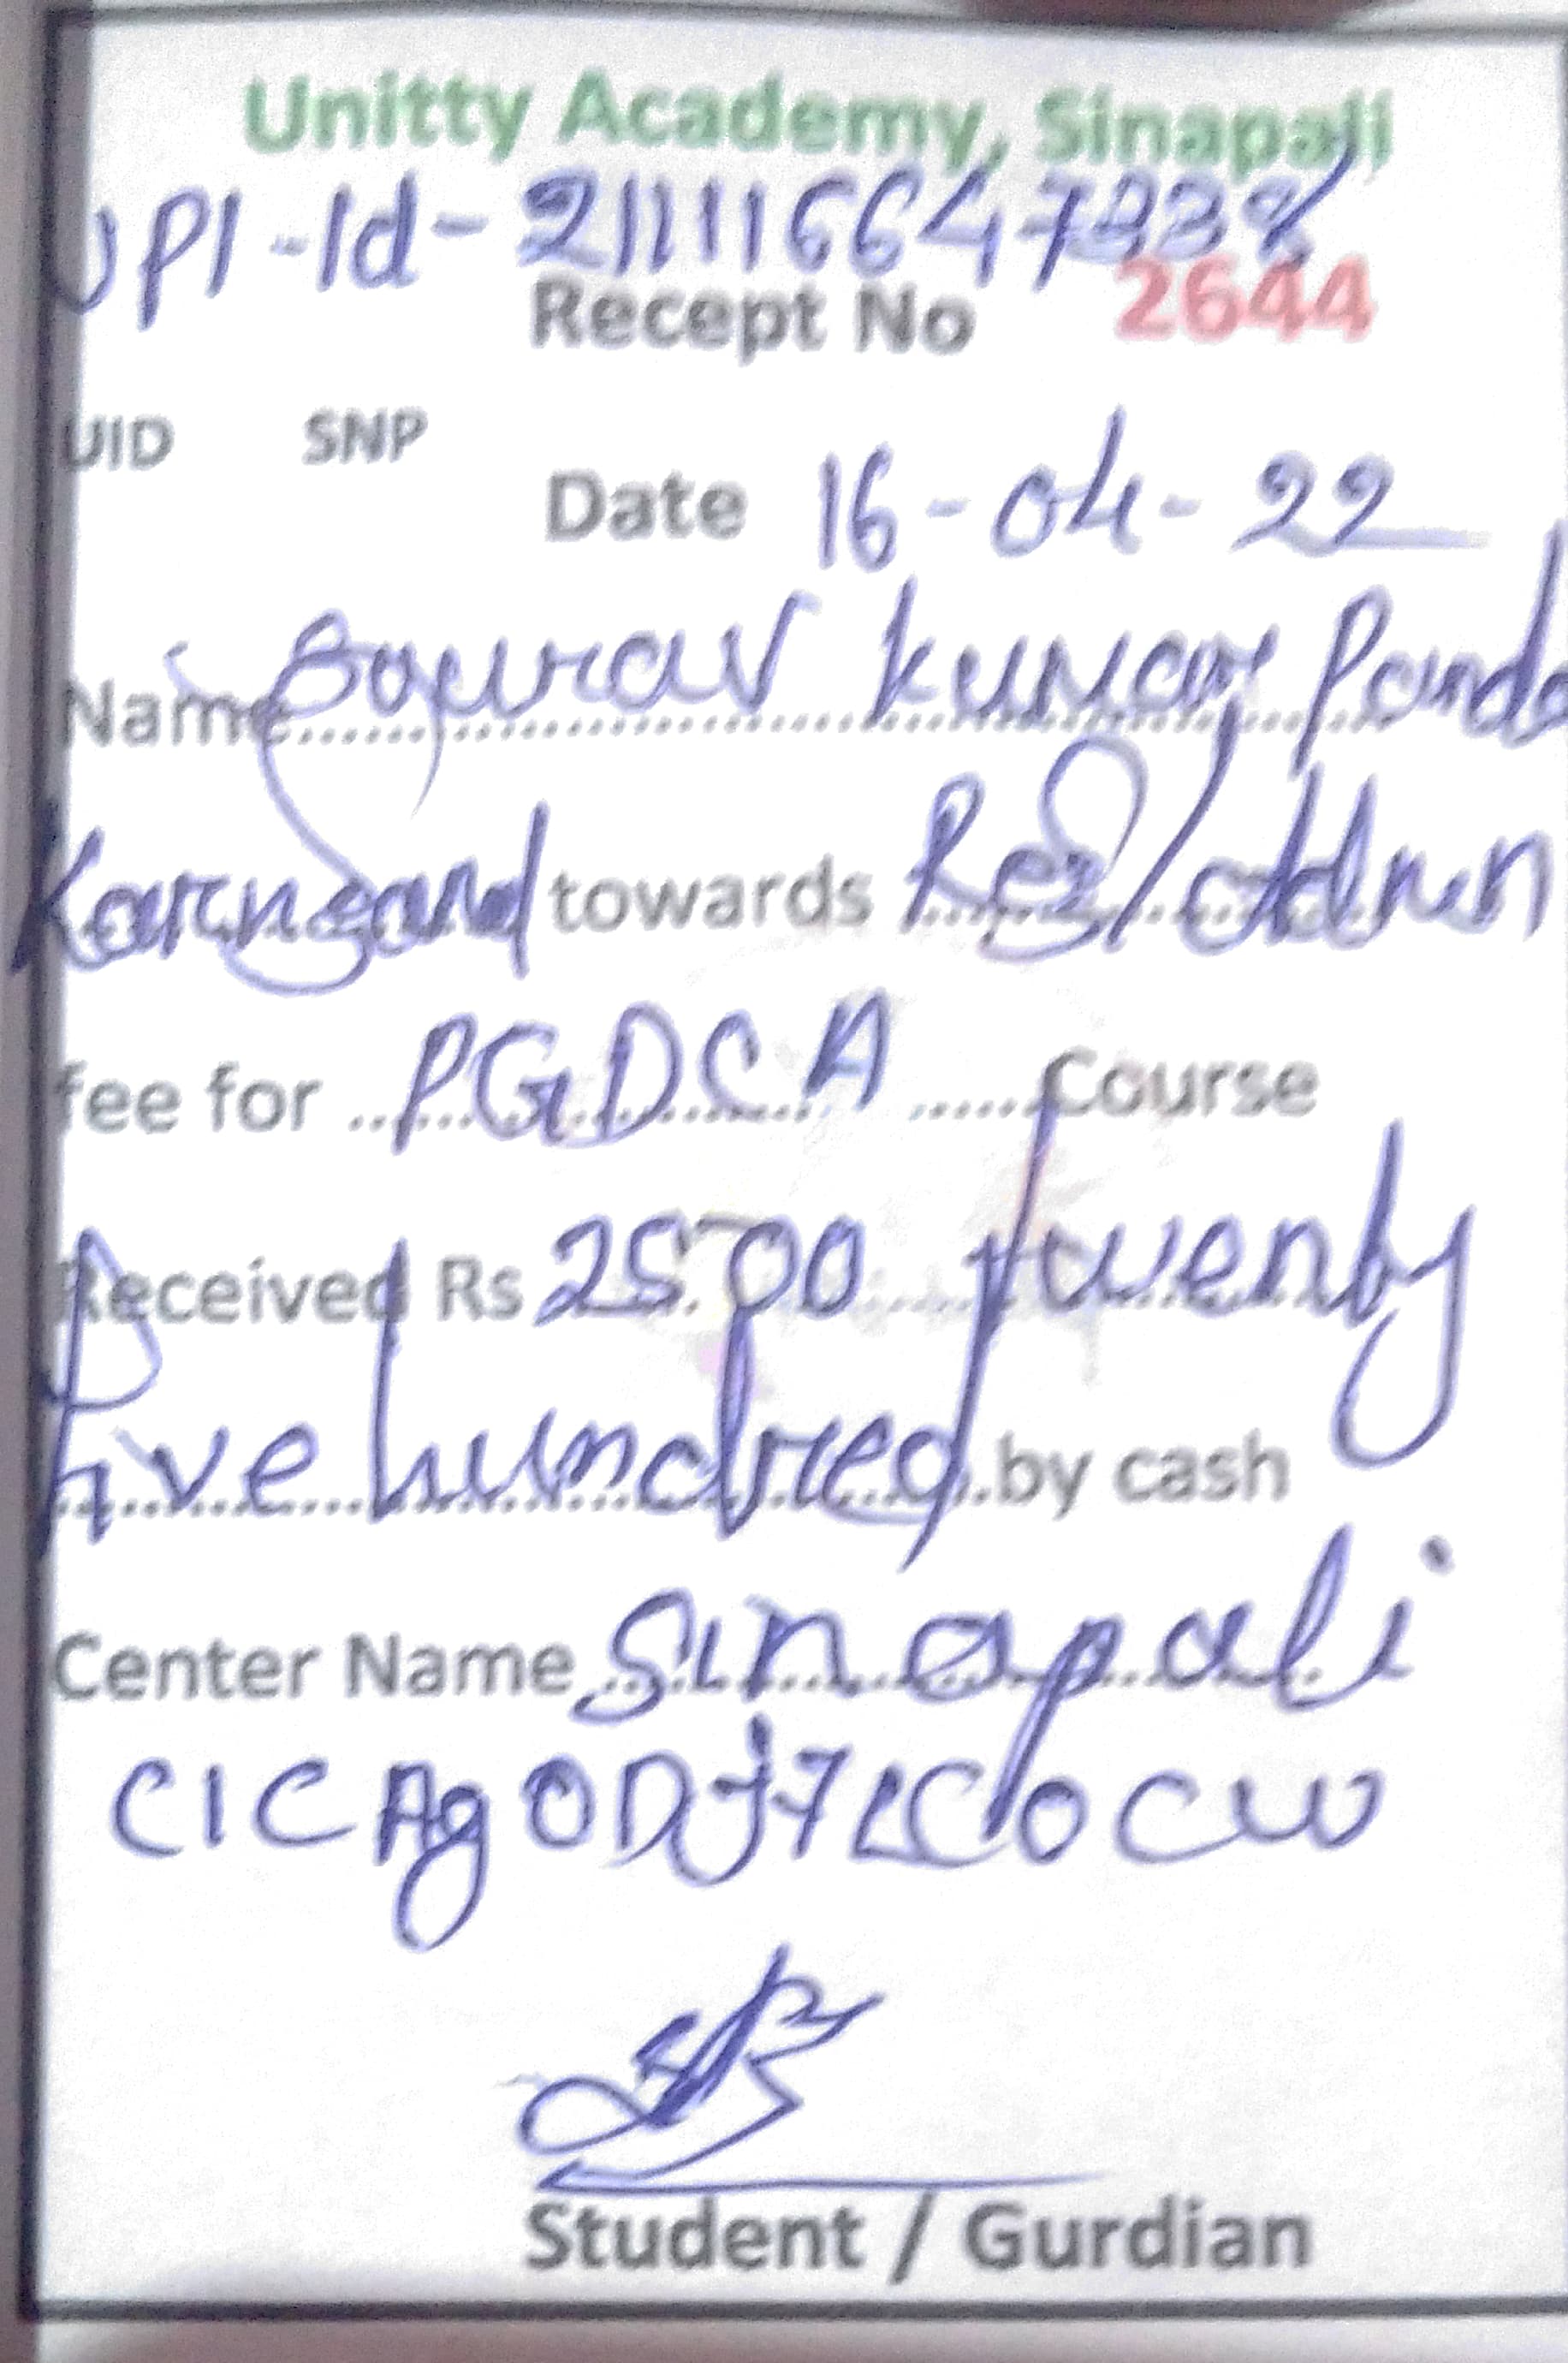 Unitty Academy, Sinapali
UPI-Id-211116647338
Recept No 2644
UID SNP
Date 16-04-22
Name Sourav Kumar Panda
Karngand towards Reg/Admn
fee for ..PGDCA.....Course
Received Rs 2500 twenty
five hundred by cash
Center Name Sinapali
CICAgODJ7LCOCW
Student / Gurdian